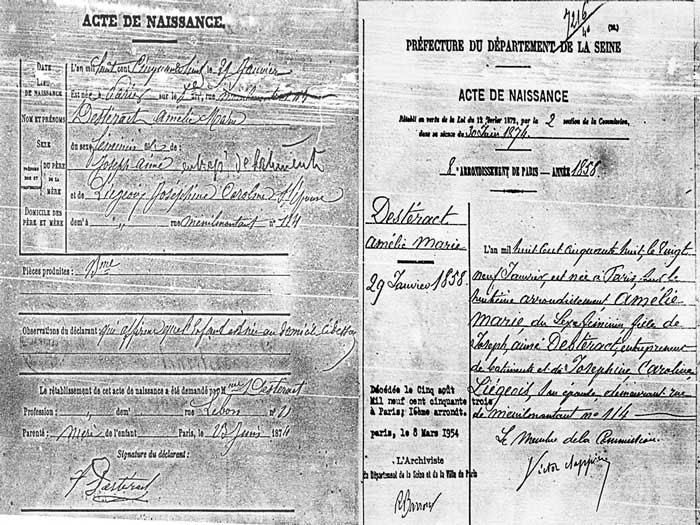 ACTE DE NAISSANCE.
DATE
LIEU
DE NAISSANCE
L'an mil huit cent Cinquante huit le 29 Janvier
Est née à Paris sur le rue menilmontant 114
NOM ET PRÉNOMS
Desteract Amélie Marie
SEXE
du sexe féminin de :
PRÉNOMS
DU PÈRE
Joseph aimé entrepr de batiments
DE LA
MÈRE
et de Liegeois Joséphine Caroline
DOMICILE DES
PÈRE ET MÈRE
dem^t à rue menilmontant n° 114
Pièces produites :
Observations du déclarant : que affirme que l'enfant est née au domicile
Le rétablissement de cet acte de naissance a été demandé par Desteract
Profession : dem^t rue Lebon n° 21
Parenté : mère de l'enfant Paris, le Juin 1874
Signature du déclarant :
Desteract
7216
PRÉFECTURE DU DÉPARTEMENT DE LA SEINE
ACTE DE NAISSANCE
Rétabli en vertu de la Loi du 12 février 1872, par la 2 section de la Commission,
dans sa séance du 30 Juin 1874
8e ARRONDISSEMENT DE PARIS — ANNÉE 1858
Destéract
Amélie Marie
29 Janvier 1858.
L'an mil huit cent cinquante huit, le vingt
neuf Janvier, est née à Paris, sur le
huitième arrondissement Amélie
Marie du sexe féminin, fille de
Joseph, aimé Destéract, entrepreneur
de batiments et de Joséphine Caroline
Liégeois, son épouse, demeurant rue
de menilmontant n° 114
Le Membre de la Commission.
Victor
Décédée le Cinq août
Mil neuf cent cinquante trois
à Paris; 16ème arrondt.
paris, le 8 Mars 1954
L'Archiviste
du Département de la Seine et de la Ville de Paris